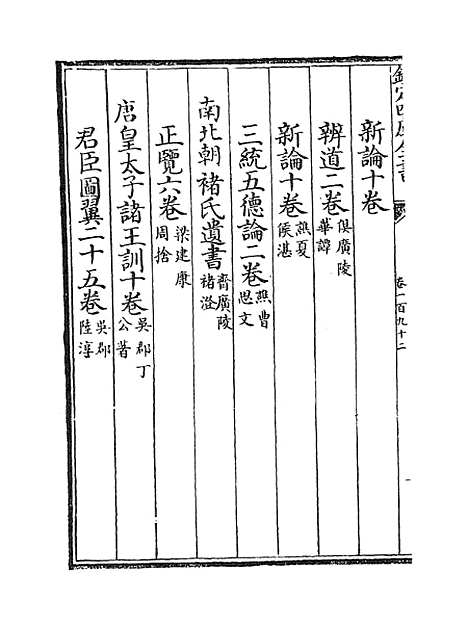 欽定四庫全書
卷一百九十二
新論十卷
辨道二卷俱廣陵華譚
新論十卷譙夏侯湛
三統五德論二卷譙曹思文
南北朝褚氏遺書齊廣陵褚澄
正覽六卷梁建康周捨
唐皇太子諸王訓十卷吳郡丁公著
君臣圖翼二十五卷吳郡陸淳